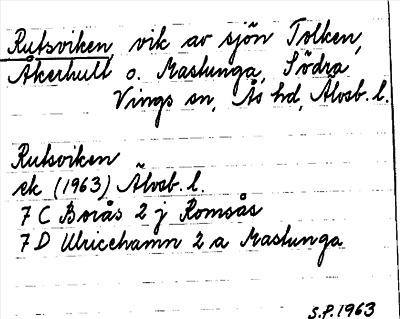 Rutsviken, vik av sjön Tolken,
Åkerhult o. Mastunga, Södra
Vings sn, Ås hd, Älvsb. l.
Rutsviken
ek (1963) Älvsb. l.
7 C Borås 2 j Romsås
7 D Ulricehamn 2 a Mastunga
S.P. 1963